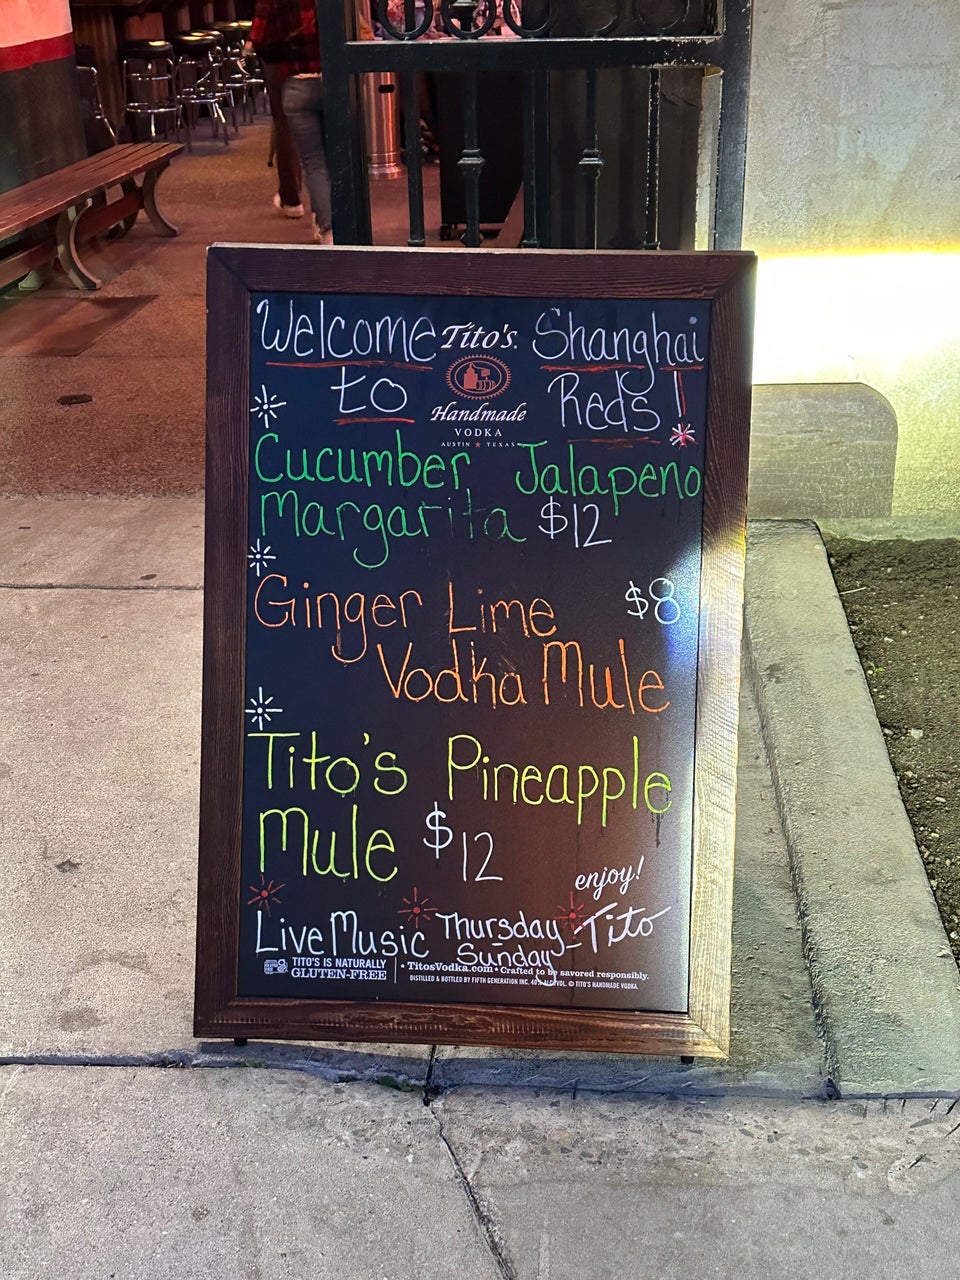 Welcome Tito's Shanghai
to Handmade Reds!
VODKA
AUSTIN ★ TEXAS
Cucumber Jalapeno
Margarita $12
Ginger Lime $8
Vodka Mule
Tito's Pineapple
Mule $12
enjoy!
Tito
Live Music Thursday-
Sunday
TITO'S IS NATURALLY
GLUTEN-FREE
• TitosVodka.com • Crafted to be savored responsibly.
DISTILLED & BOTTLED BY FIFTH GENERATION INC. 40% ALC/VOL. © TITO'S HANDMADE VODKA.